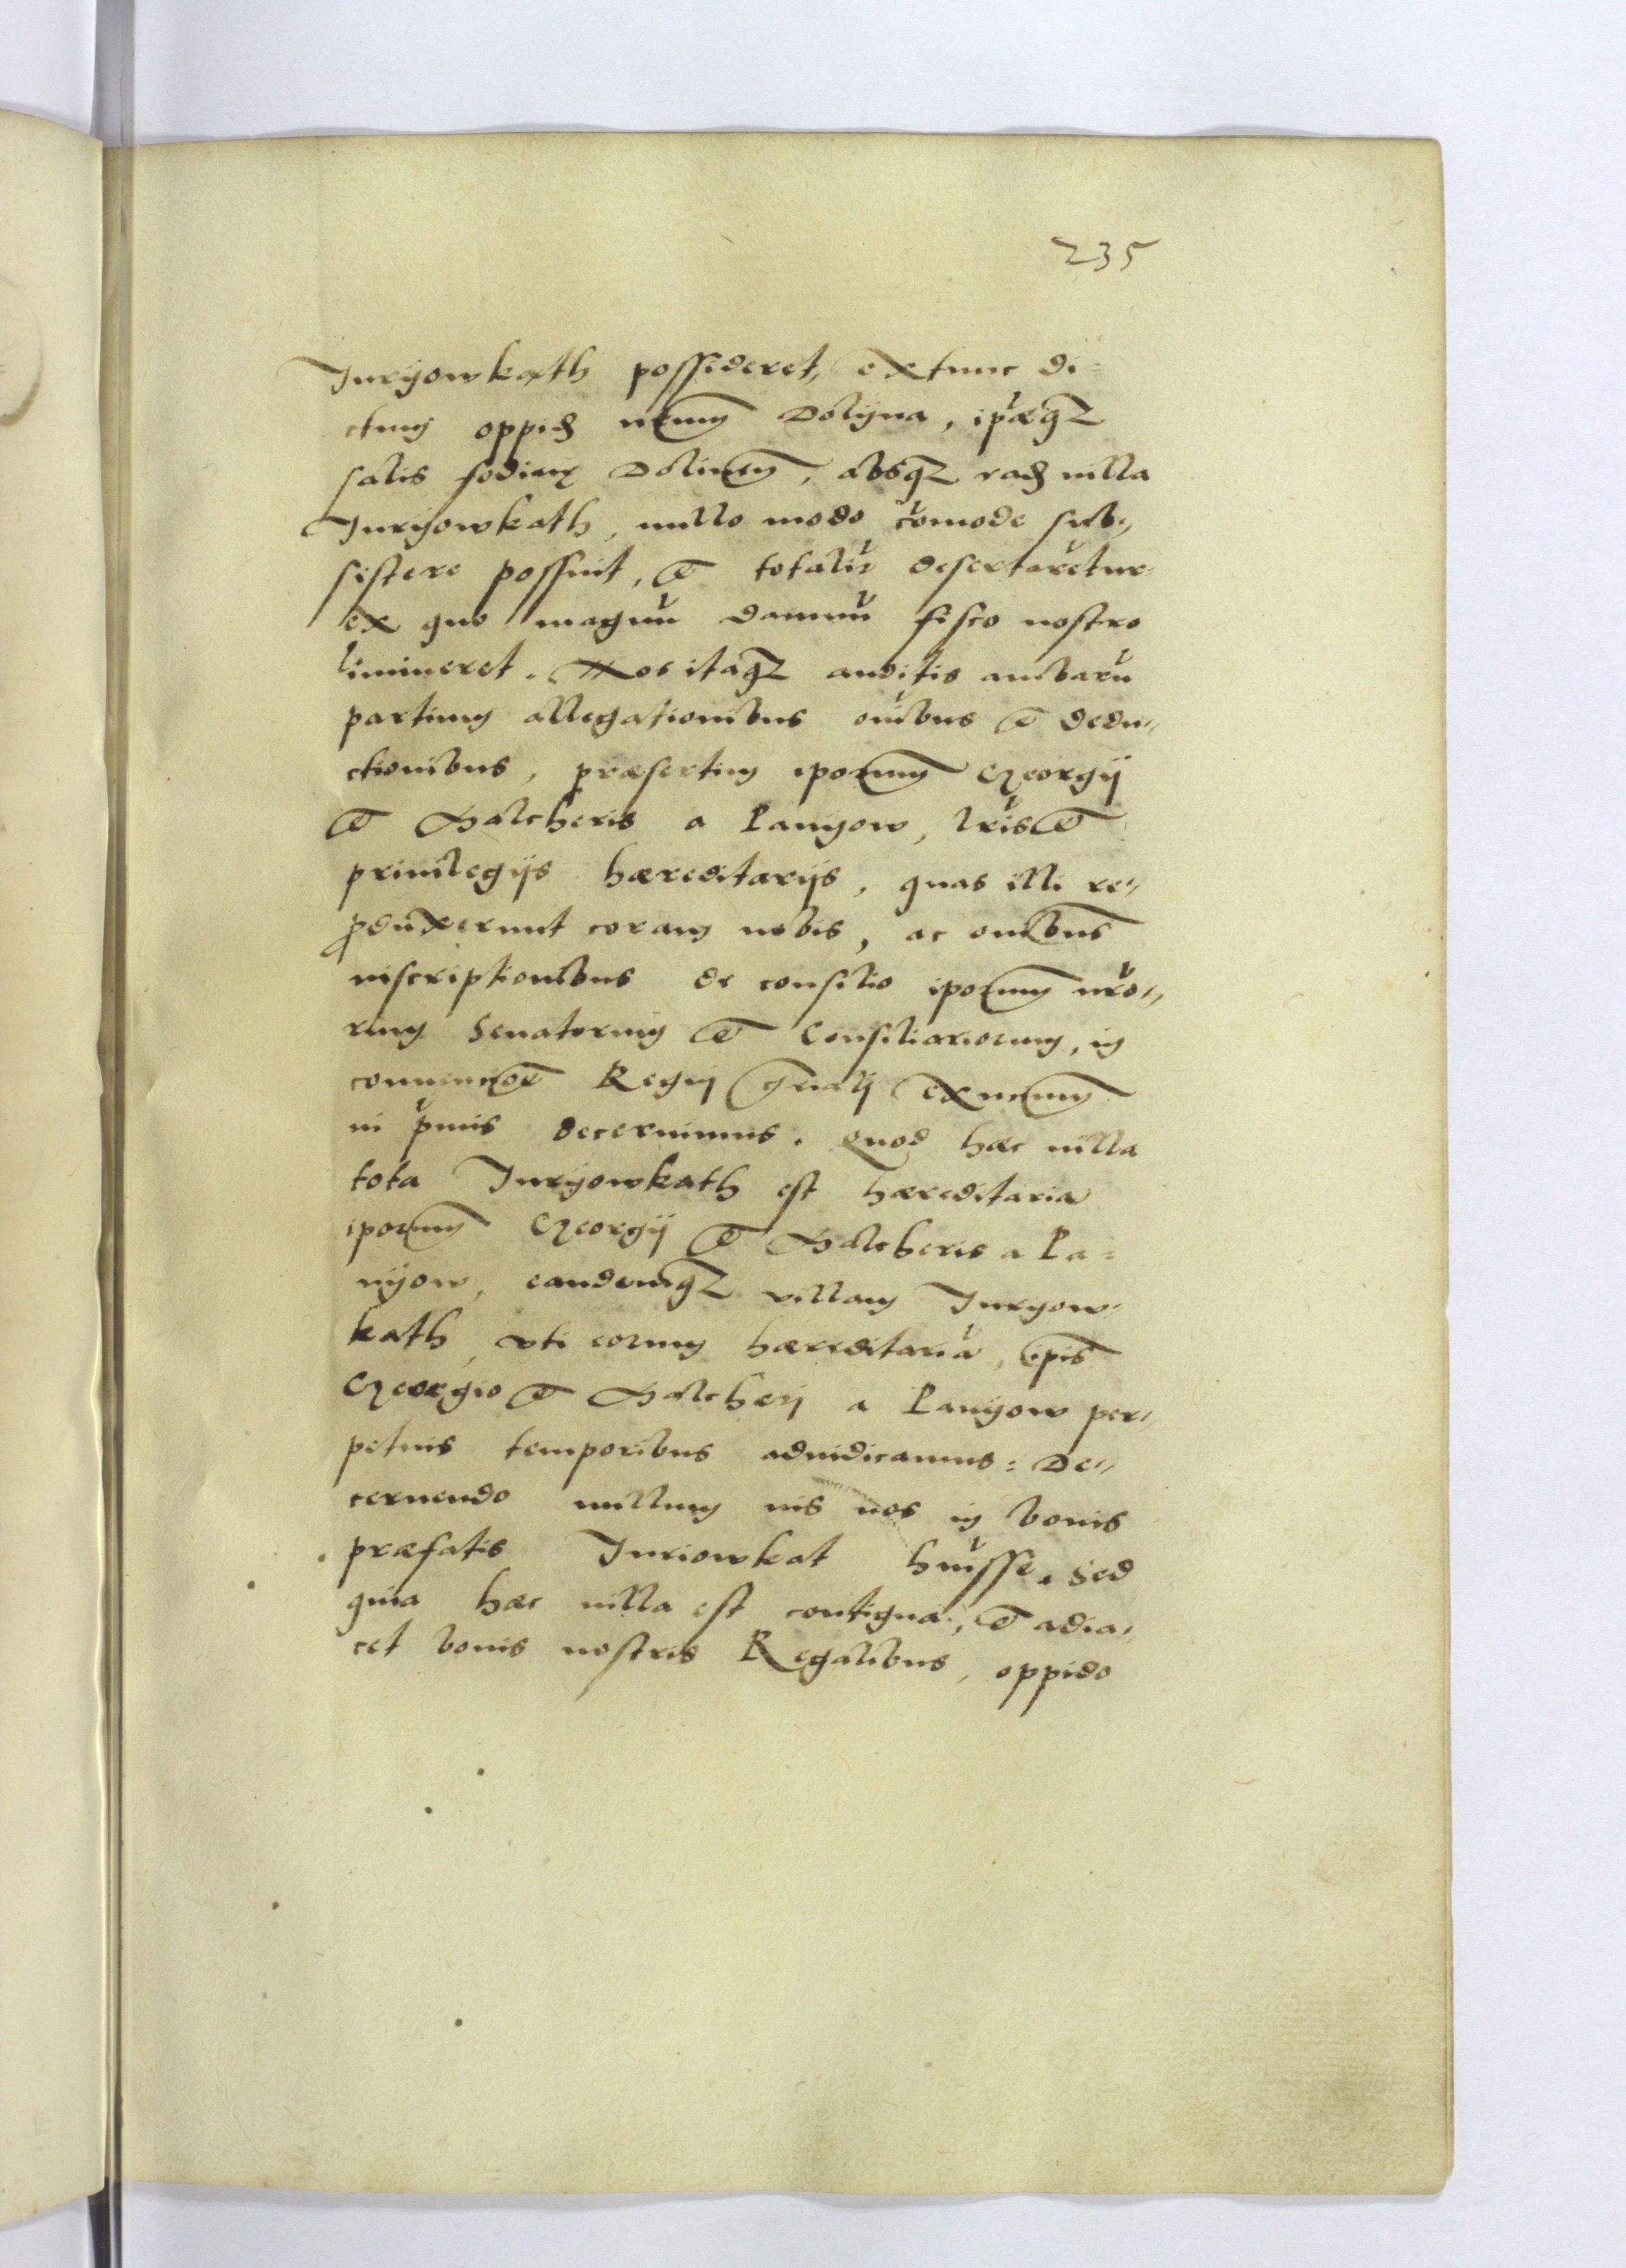 235
Juryowkath possideret, extunc di=
ctum oppid nrum Dolyna, ipaeq3
salis fodinae Dolinen, absq3 ead villa
Juryowkath, nullo modo comode sub„
sistere possint, et totalir desertaretur
ex quo magnu damnu fisco nostro
imineret. Nos itaq3 auditis ambaru
partium allegationibus oibus et dedu„
ctionibus, praesertim iporum Georgij
et Halcheris a Panyow, lris et
priuilegijs haereditarijs, quas illi re„
produxerunt coram nobis, ac omibus
inscriptionibus de consilio iporum nro„
rum Senatorum et Consiliariorum, in
conuencoe Regni gnali exnunc
in pmis decernimus. Quod haec uilla
tota Juryowkath est haereditaria
iporum Georgij et Halcheris a Pa=
nyow, eandemq3 villam Juryow„
kath, vti eorum haereditaria, ipis
Georgio et Halcherj a Panyow per„
petuis temporibus adiudicamus: De„
cernendo nullum ius nos in bonis
praefatis Juriowkat huisse. Sed
quia haec uilla est contigua, et adia„
cet bonis nostris Regalibus, oppido